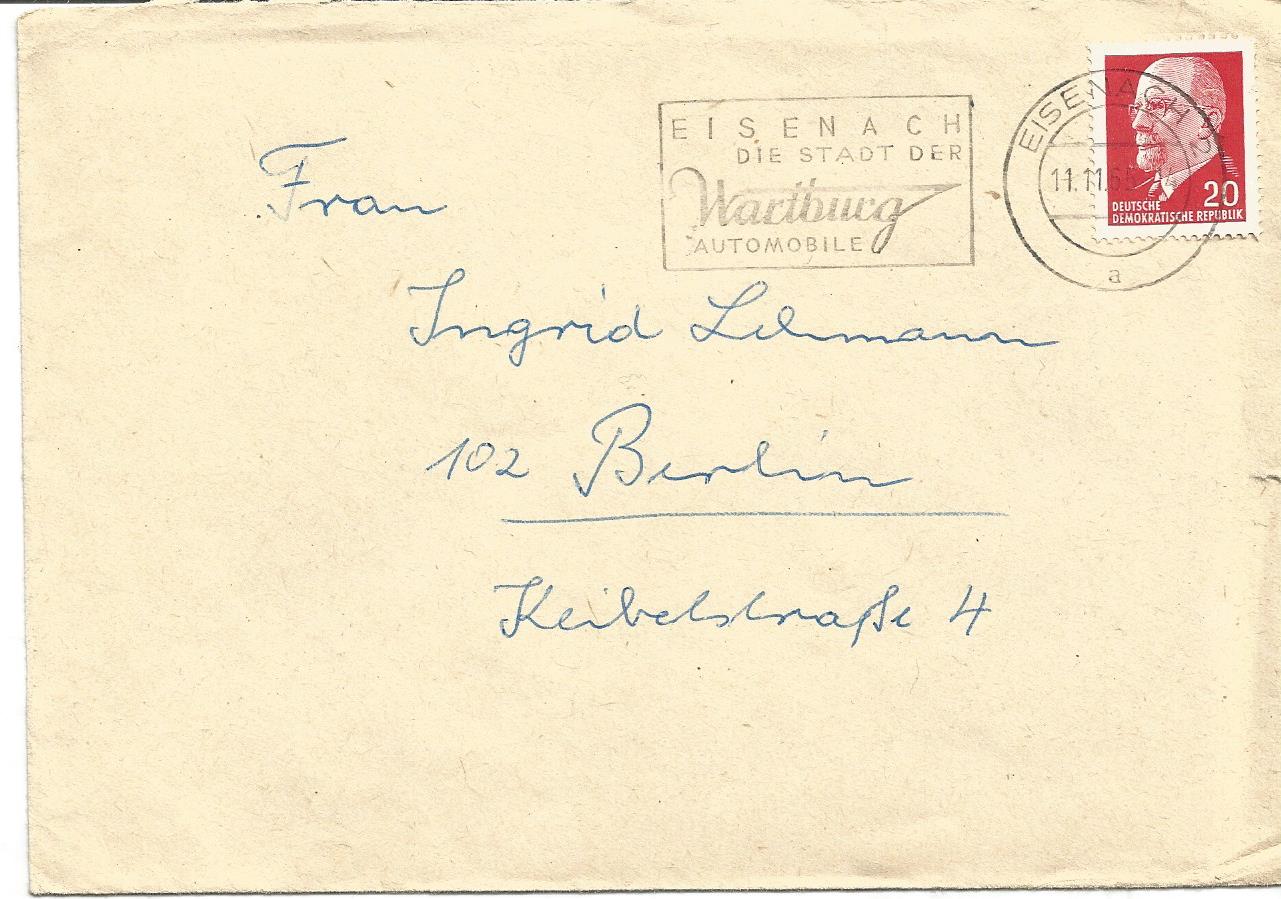 EISENACH
DIE STADT DER
Wartburg
AUTOMOBILE
EISENACH
11.11.65
a
20
DEUTSCHE
DEMOKRATISCHE REPUBLIK
Frau
Ingrid Lehmann
102 Berlin
Keibelstraße 4